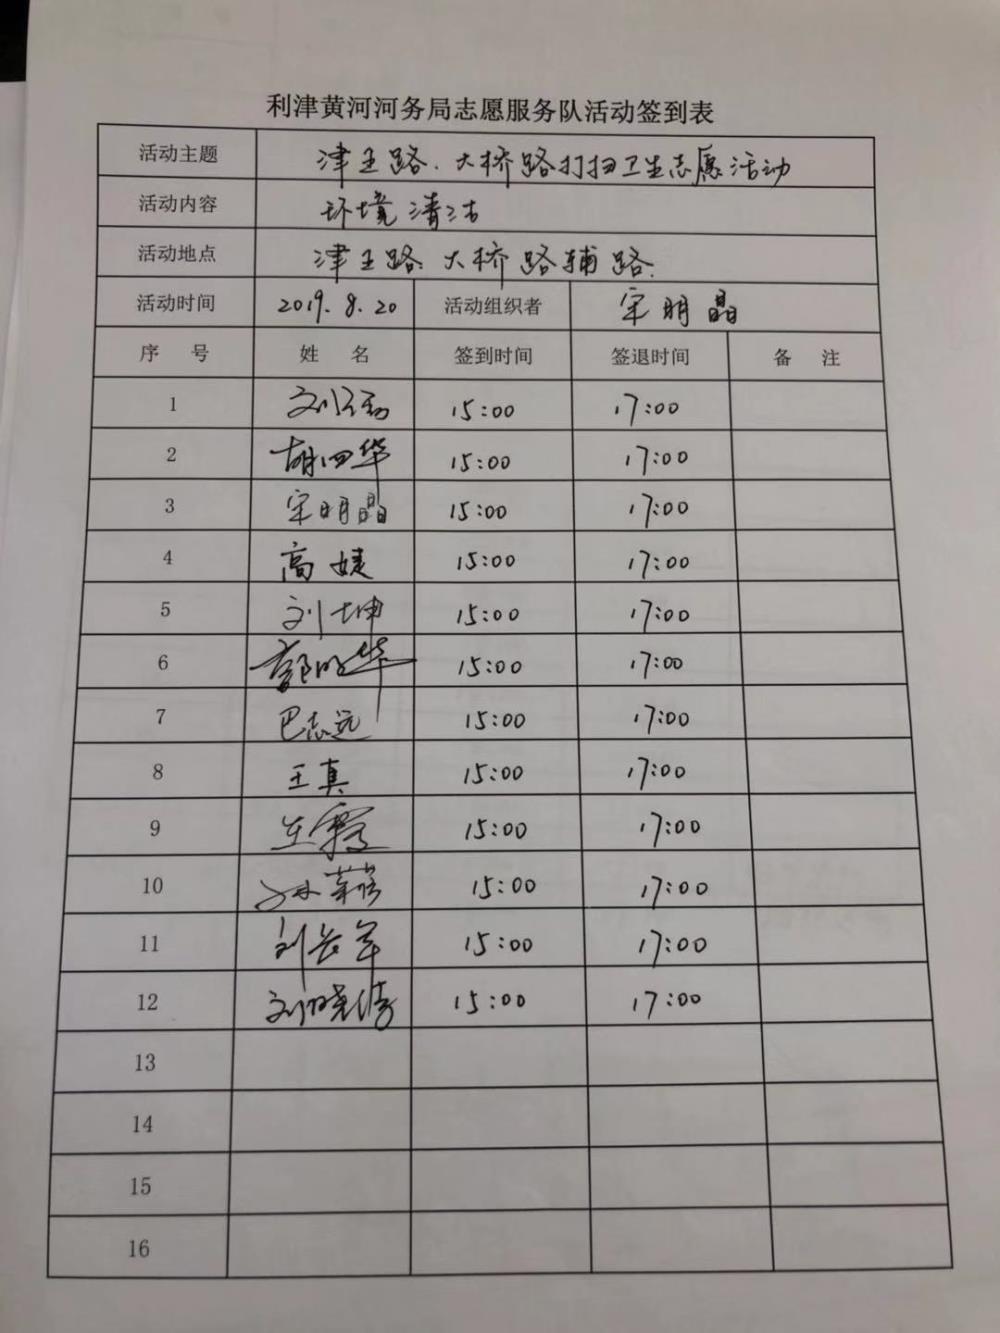 利津黄河河务局志愿服务队活动签到表
活动主题 津王路、大桥路打扫卫生志愿活动
活动内容 环境清洁
活动地点 津王路、大桥路辅路.
活动时间 2019.8.20 活动组织者 宋明晶
序 号 姓 名 签到时间 签退时间 备 注
1 15:00 17:00
2 胡四华 15:00 17:00
3 宋明晶 15:00 17:00
4 高婕 15:00 17:00
5 刘坤 15:00 17:00
6 15:00 17:00
7 巴志远 15:00 17:00
8 王真 15:00 17:00
9 15:00 17:00
10 15:00 17:00
11 刘长军 15:00 17:00
12 刘晓倩 15:00 17:00
13
14
15
16